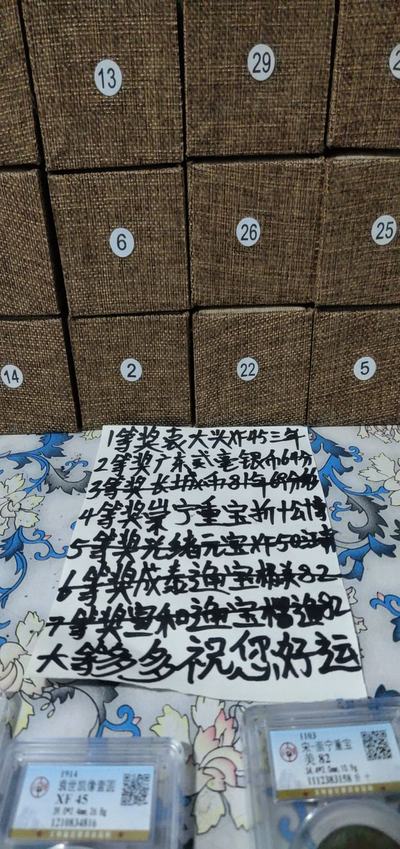 13
29
2
6
26
25
14
2
22
5
1等奖袁大头XF45三年
2等奖广东弍毫银币64分
3等奖长城币81年68分
4等奖崇宁重宝折十公博
5等奖光绪元宝XF50
6等奖咸泰通宝极美82
7等奖宣和通宝楷通82
大等多多祝您好运
1914
袁世凯像壹圆
XF 45
1210834816
1103
宋-崇宁重宝
美 82
1112383158